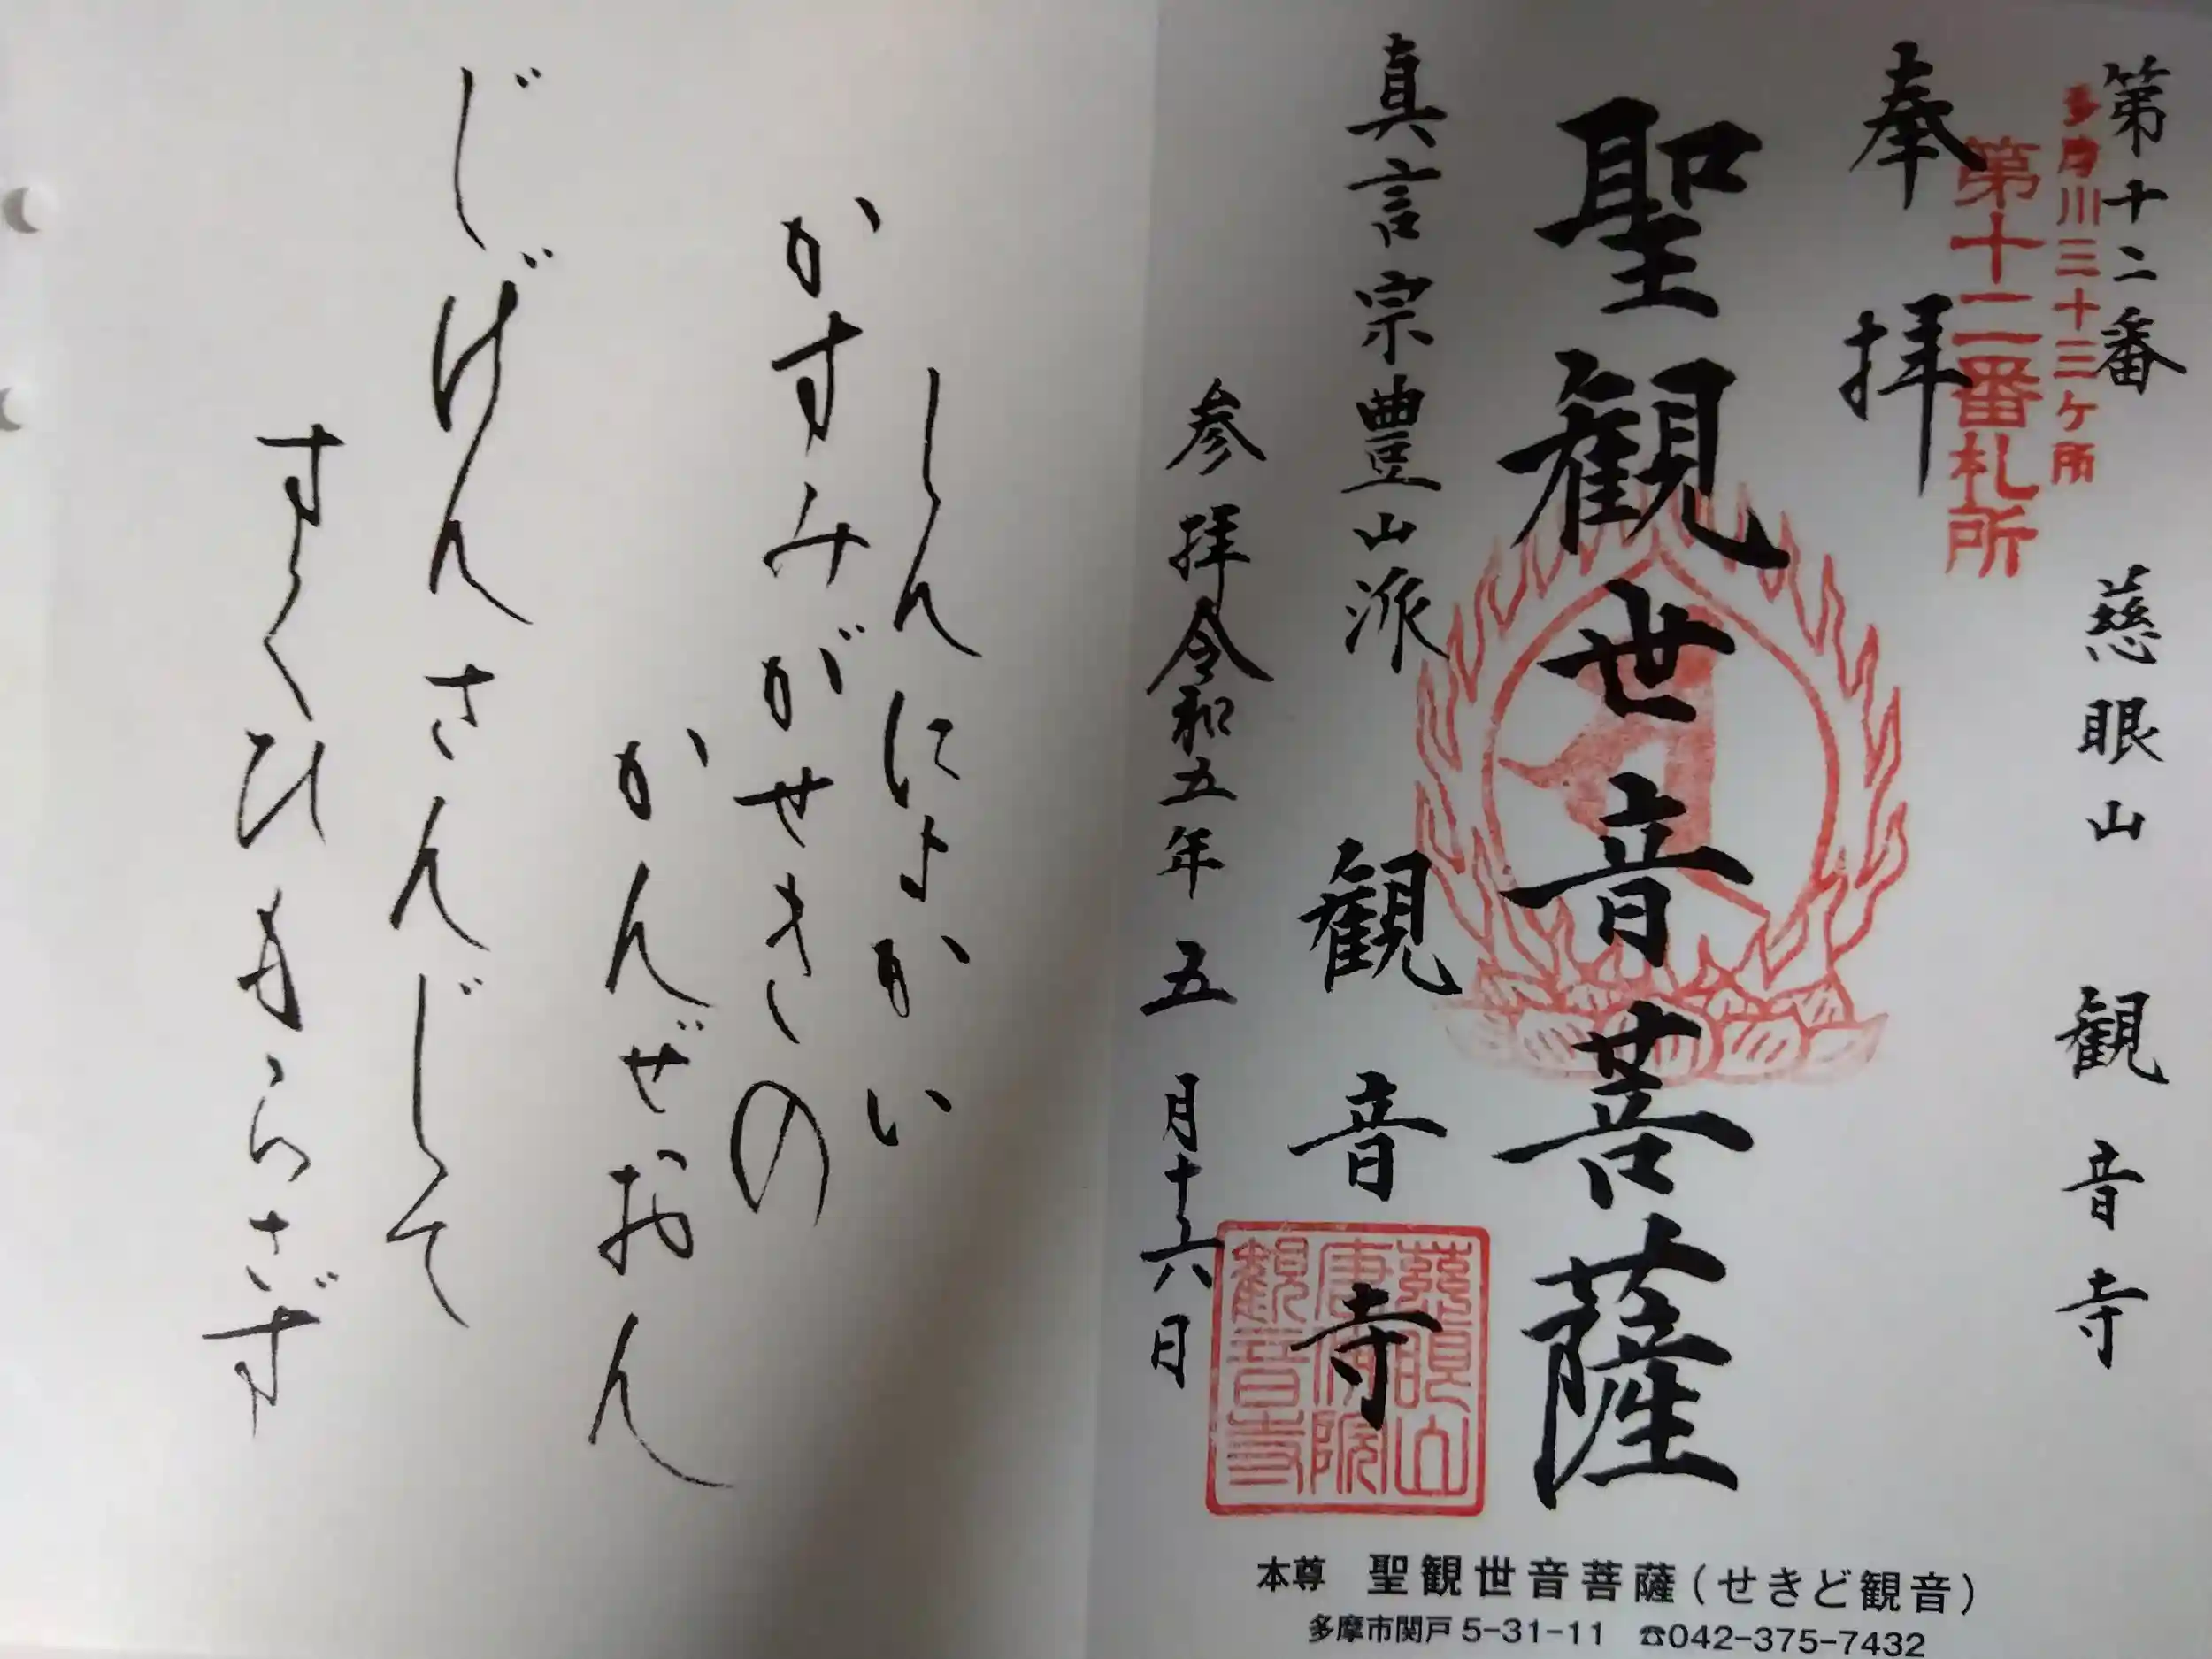 第十二番 慈眼山 観音寺
多摩川三十三ケ所
第十二番札所
奉拝
聖観世音菩薩
真言宗豊山派 観音寺
慈眼山
唐仏院
観音寺
参拝令和五年五月十六日
本尊 聖観世音菩薩(せきど観音)
多摩市関戸5-31-11 ☎042-375-7432
しんによかい
かすみがせきの
かんぜおん
じげんさんじして
すくひもらさず